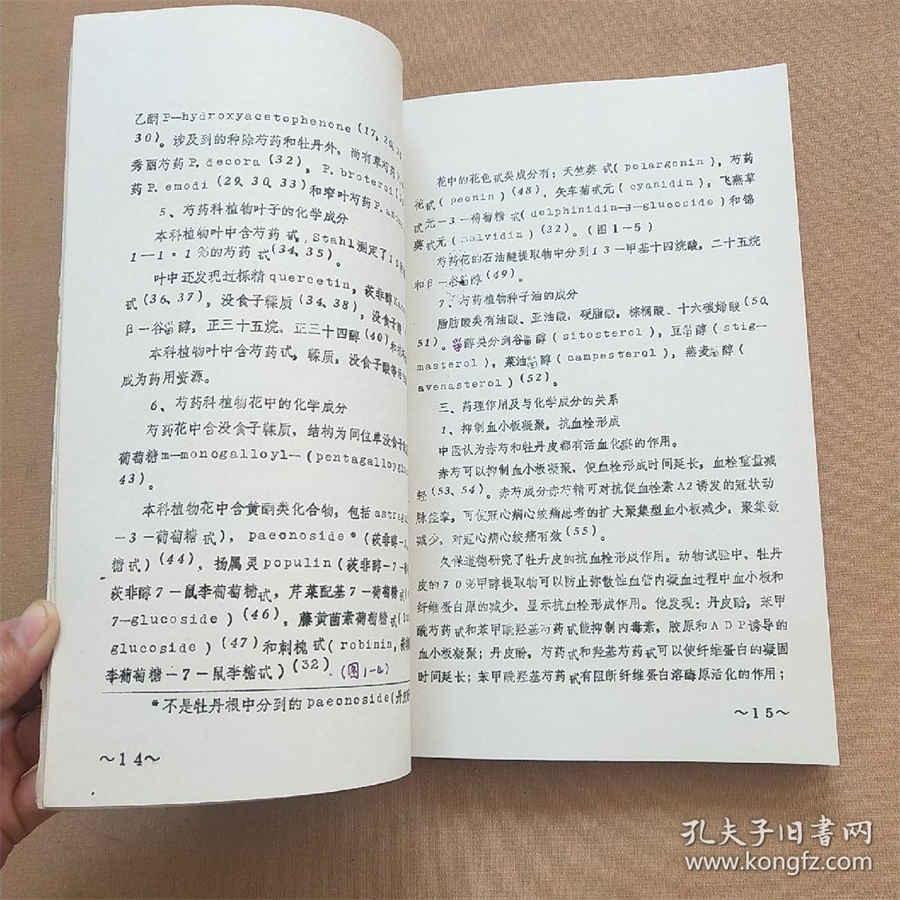 乙酮P—hydroxyacetophenone(17,20,
30)。涉及到的种除芍药和牡丹外,尚有草芍药
秀丽芍药P.decora(32),P.broteroi
药P.emodi(29,30,33)和窄叶芍药P.
5、芍药科植物叶子的化学成分
本科植物叶中含芍药甙,Stahl测定了15
1—1·1%的芍药甙(34,35)。
叶中还发现过栎精quercetin,莰非醇
甙(36,37),没食子鞣质(34,38),没食子
β—谷甾醇,正三十五烷,正三十四醇(40)和
本科植物叶中含芍药甙,鞣质,没食子酸等
成为药用资源。
6、芍药科植物花中的化学成分
芍药花中含没食子鞣质,结构为同位单没食子
葡萄糖m—monogalloyl—(pentagalloyl
43)。
本科植物花中含黄酮类化合物,包括astra
—3—葡萄糖甙),paeonoside*(莰非醇—
糖甙)(44),杨属灵populin(莰非醇—7—
莰非醇7—鼠李葡萄糖甙,芹菜配基7—葡萄糖甙
7—glucoside)(46),藤黄菌素葡萄糖甙(
glucoside)(47)和刺槐甙(robinin,
李葡萄糖—7—鼠李糖甙)(32)(图1-4)
*不是牡丹根中分到的paeonoside(丹
~14~
花中的花色甙类成分有:天竺葵甙(pelargonin),芍药
花甙(peonin)(48),矢车菊甙元(cyanidin),飞燕草
甙元—3—葡萄糖甙(delphinidin—3—glucoside)和锦
葵甙元(malvidin)(32)。(图1—5)
芍药花的石油醚提取物中分到13—甲基十四烷酸,二十五烷
和β—谷甾醇(49)。
7、芍药植物种子油的成分
脂肪酸类有油酸、亚油酸,硬脂酸,棕榈酸、十六碳烯酸(50,
51)。甾醇类分到谷甾醇(sitosterol),豆甾醇(stig—
masterol),菜油甾醇(campesterol),燕麦甾醇(
avenasterol)(52)。
三、药理作用及与化学成分的关系
1、抑制血小板凝聚,抗血栓形成
中医认为赤芍和牡丹皮都有活血化瘀的作用。
赤芍可以抑制血小板凝聚,使血栓形成时间延长,血栓重量减
轻(53,54)。赤芍成分赤芍精可对抗促血栓素A2诱发的冠状动
脉痉挛,可使冠心病心绞痛患者的扩大聚集型血小板减少,聚集数
减少,对冠心病心绞痛有效(55)。
久保道德研究了牡丹皮的抗血栓形成作用。动物试验中、牡丹
皮的70%甲醇提取物可以防止弥散性血管内凝血过程中血小板和
纤维蛋白原的减少,显示抗血栓形成作用。他发现:丹皮酚,苯甲
酰芍药甙和苯甲酰羟基芍药甙能抑制内毒素,胶原和ADP诱导的
血小板凝聚;丹皮酚,芍药甙和羟基芍药甙可以使纤维蛋白的凝固
时间延长;苯甲酰羟基芍药甙有阻断纤维蛋白溶酶原活化的作用;
~15~
孔夫子旧書网
www.kongfz.com